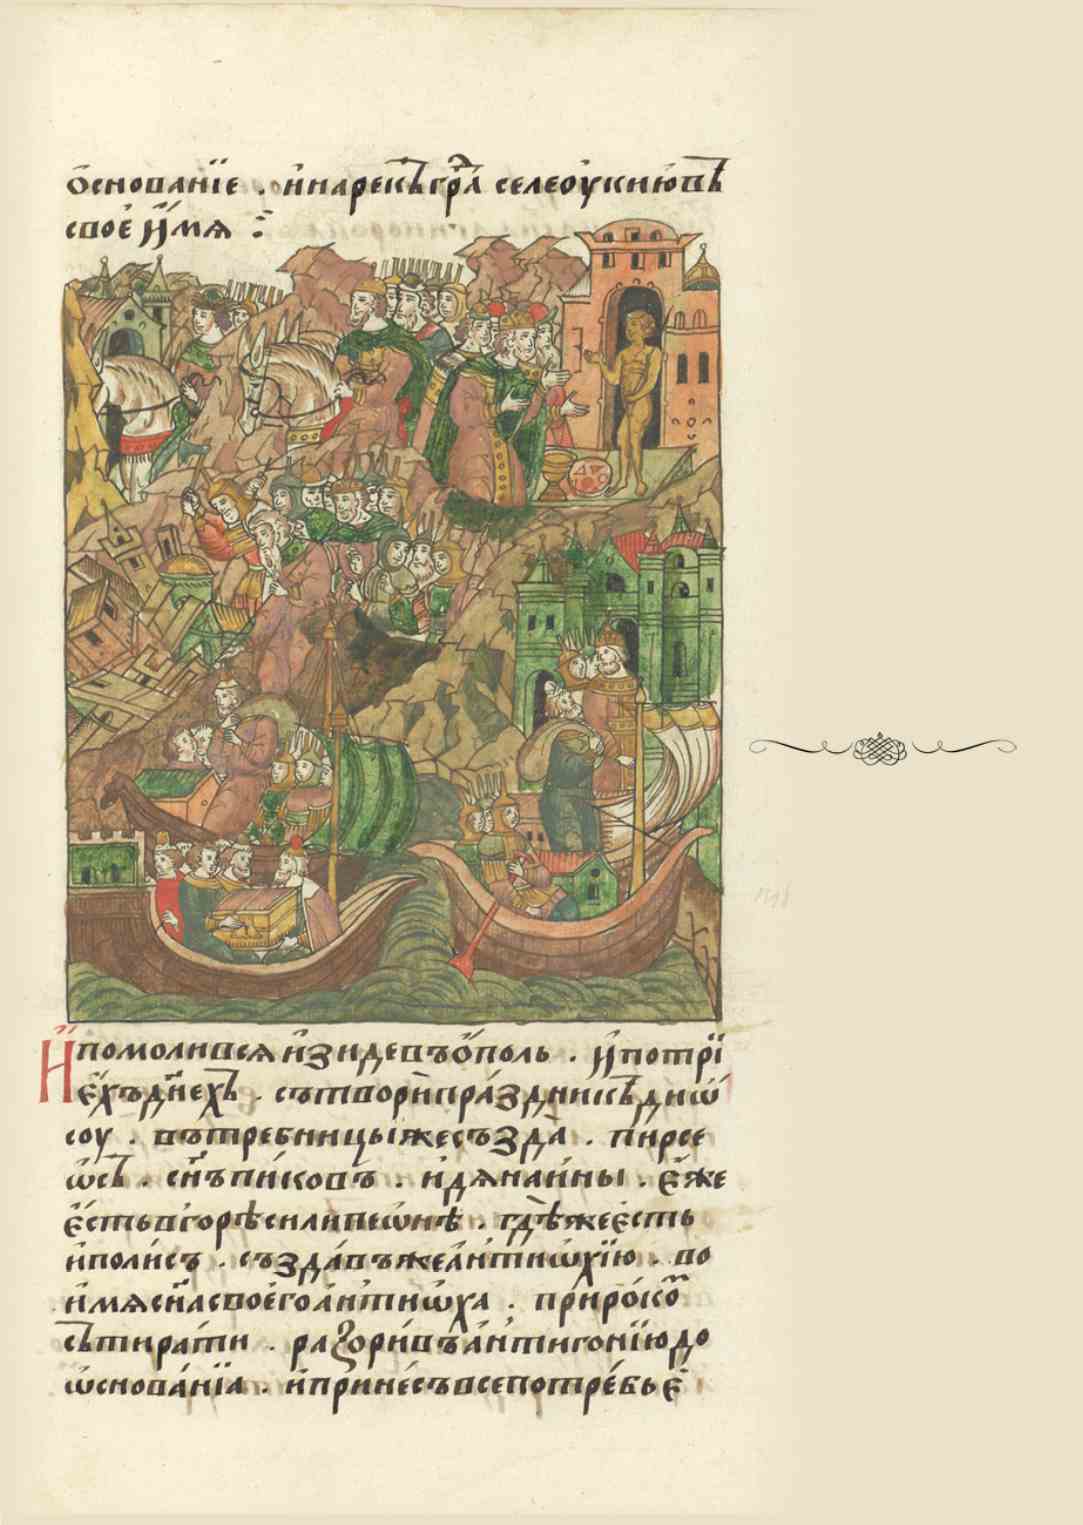 ѻснованїе . и҆нарекъгра҃ селеоукиювъ
своѐ и҆́мѧ ҃:
И҆помоливсѧ и҆зидевъѻ҆́поль . и҆потрї
е҆́хъдн҃ехъ . сътвори̏пра́здникъдиѡ́
соу . вътребницыжесъзда̀ . пирсе
ѡсъ . сн҃ъпи́ковъ . и҆дѧнаи́ны . е҆́же
е҆́стьвгорѣсилипеѡ́нѣ . гдѣжее҆сть
и҆поли́съ . създа́въжеа҆нтиѡхїю . во
и҆мѧсн҃асвоего̀а҆нтиѡха . приро́ко
сътира́ти . разори́въа҆нтигонїюдо
ѡснова́нїа . и҆прине́съвсепотре́бье҆